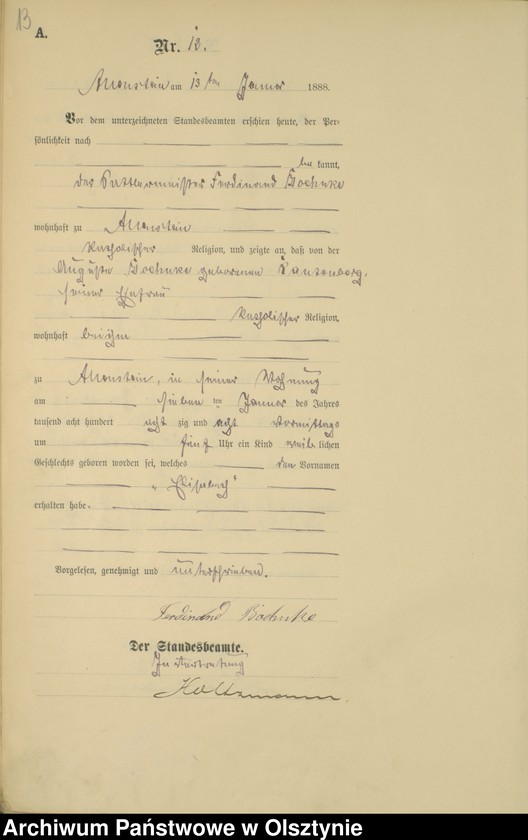 13
A.
Nr. 13.
Allenstein am 13 ten Januar 1888.
Vor dem unterzeichneten Standesbeamten erschien heute, der Per-
sönlichkeit nach
be kannt,
der Sattlermeister Ferdinand Boehnke
wohnhaft zu Allenstein
katholischer Religion, und zeigte an, daß von der
Auguste Boehnke geborenen
seiner Ehefrau
katholischer Religion,
wohnhaft bei ihm
zu Allenstein, in seiner Wohnung
am sieben ten Januar des Jahres
tausend acht hundert acht zig und acht Vormittags
um fünf Uhr ein Kind weib lichen
Geschlechts geboren worden sei, welches den Vornamen
"Elisabeth"
erhalten habe.
Vorgelesen, genehmigt und unterschrieben.
Ferdinand Boehnke
Der Standesbeamte.
In Vertretung
Holtzmann.
Archiwum Państwowe w Olsztynie